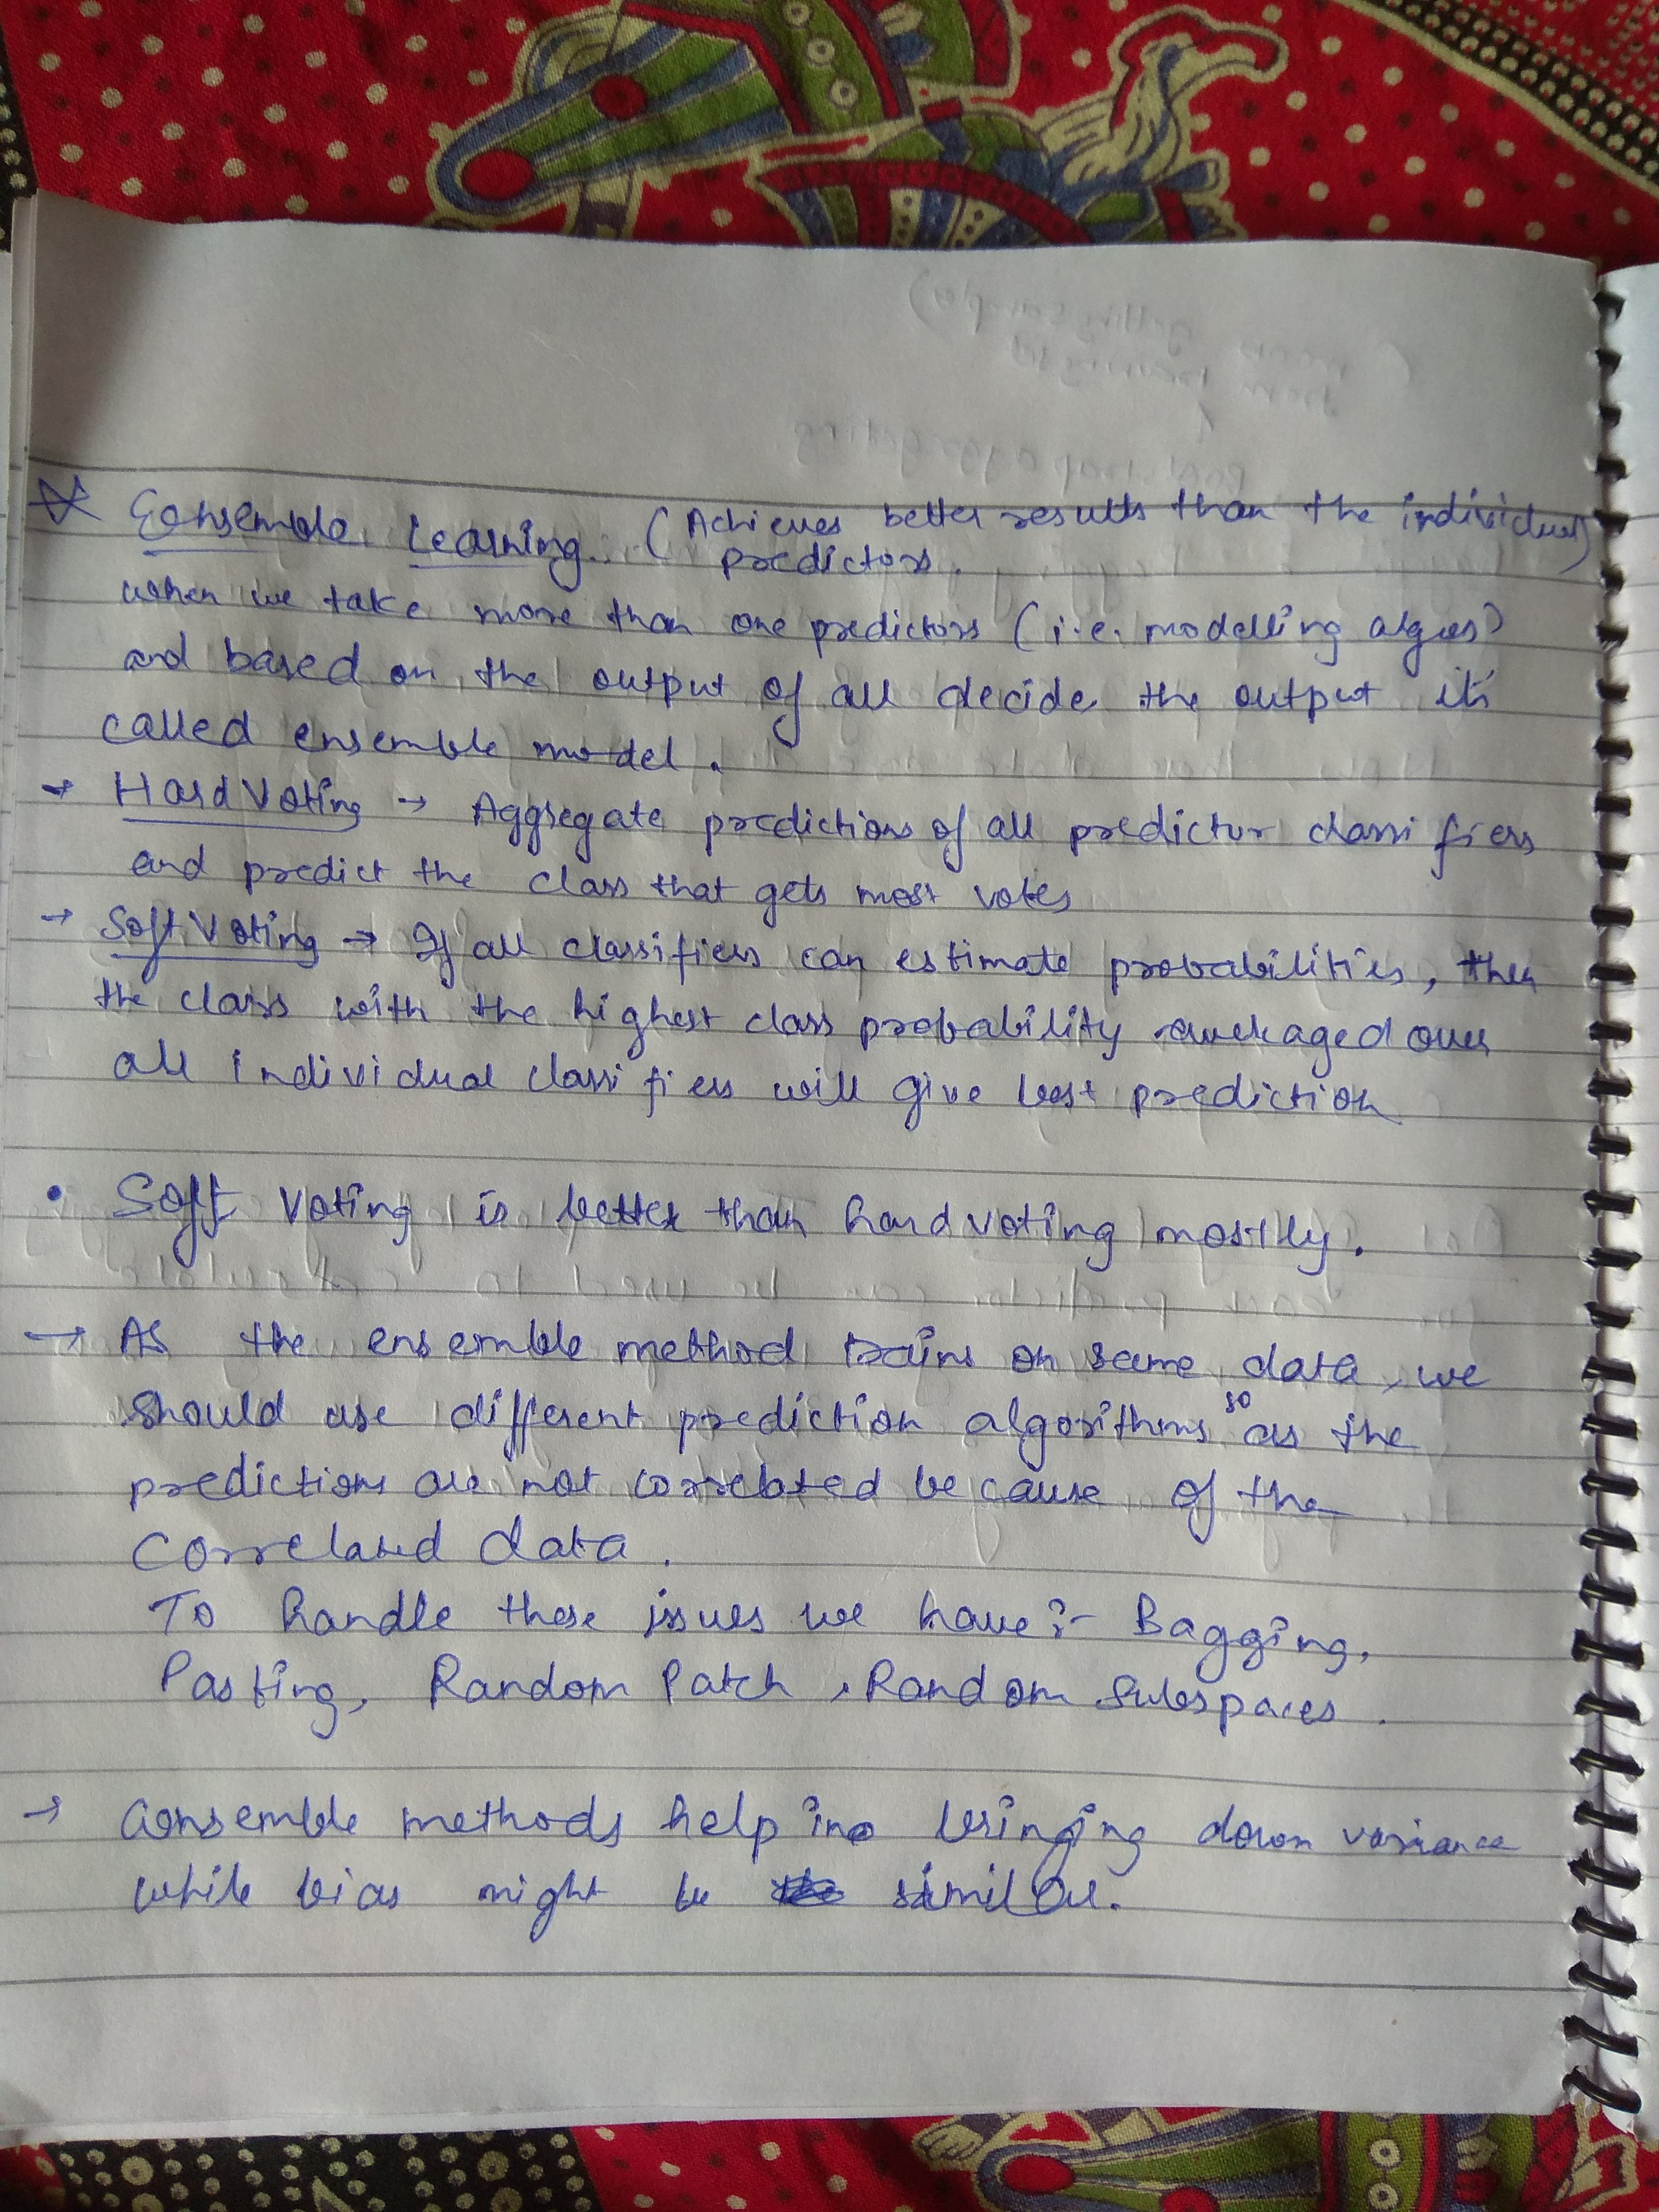 Ensemble Learning. (Achieves better results than the individual
predictors.)
when we take more than one predictors (i.e. modelling algos)
and based on the output of all decide the output it's
called ensemble model.
→ Hard Voting → Aggregate predictions of all predictor classifiers
and predict the class that gets most votes
→ Soft Voting → If all classifiers can estimate probabilities, then
the class with the highest class probability averaged over
all individual classifiers will give best prediction
• Soft Voting is better than hard voting mostly.
→ As the ensemble method trains on same data, we
should use different prediction algorithms so as the
predictions are not correlated because of the
correlated data.
To handle these issues we have :- Bagging,
Pasting, Random Patch, Random Subspaces.
→ Ensemble methods help in bringing down variance
while bias might be similar.